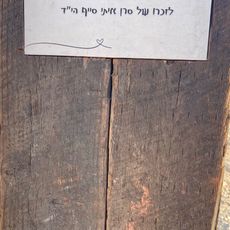 לזכרו של סרן איתי סייף הי"ד